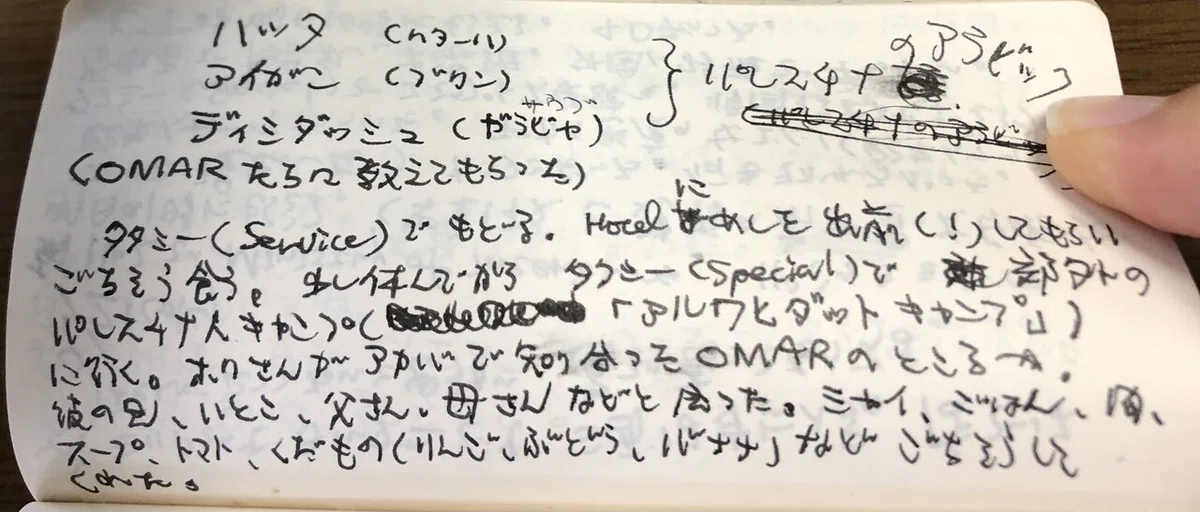 ハッタ (ハターハ) } パレスチナのアラビック
アイガン (ブクン)
ディミダッシュ (ガラビヤ) サウブ
(OMARたちに教えてもらった)
タクシー(Service)でもどる。Hotelにめしを出前(!)してもらい
ごちそう食う。少し休んでから タクシー(Special)で 郊外の
パレスチナ人キャンプ( 「アルワヒダットキャンプ」)
に行く。ホリさんがアカバで知り合ったOMARのところへ。
彼の兄、いとこ、父さん、母さんなどと会った。ミカイ、ごはん、肉、
スープ、トマト、くだもの(りんご、ぶどう、バナナ)などごちそうして
くれた。